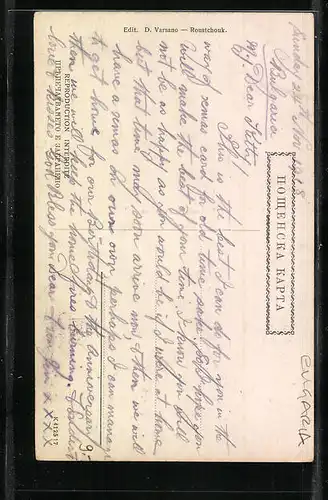 Edit. D. Varsano — Roustchouk.
ПОЩЕНСКА КАРТА
REPRODUCTION INTERDITE
ПРЕПЕЧАТВАНЕТО Е ЗАПАЗЕНО
K 4125 7
BULGARIA
Sunday 24th Nov
Bulgaria
My Dear Kitty!
This is the best I can do for you in the
way of Xmas card for old time sake! hope you
will make the best of your time, I know you will
not be as happy as you would be if I were at home
but that time may soon arrive now & then we will
have a Xmas of our own perhaps I can manage
to get home for our Birthdays & the anniversary,
then we will keep the home fires burning.
love & kisses God Bless you Dear from x x x